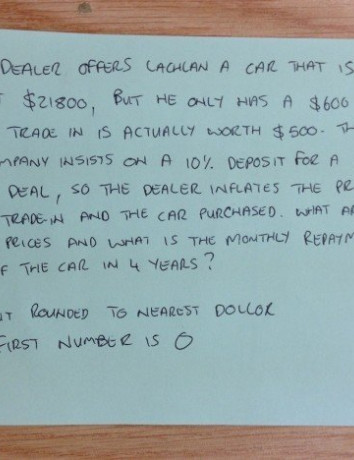 DEALER OFFERS LACHLAN A CAR THAT IS
$21800, BUT HE ONLY HAS A $600
TRADE IN IS ACTUALLY WORTH $500.
INSISTS ON A 10% DEPOSIT FOR A
DEAL, SO THE DEALER INFLATES THE
TRADE-IN AND THE CAR PURCHASED. WHAT
PRICES AND WHAT IS THE MONTHLY
THE CAR IN 4 YEARS?
ROUNDED TO NEAREST DOLLOR
FIRST NUMBER IS 0